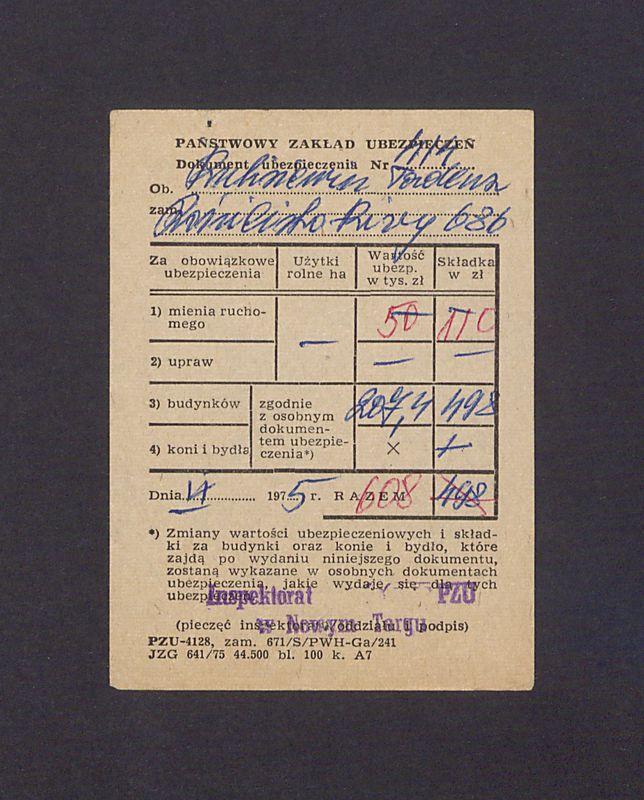 PAŃSTWOWY ZAKŁAD UBEZPIECZEŃ
Dokument ubezpieczenia Nr 414
Ob. Tadeusz
zam. 686
Za obowiązkowe ubezpieczenia
Użytki rolne ha
Wartość ubezp. w tys. zł
Składka w zł
1) mienia ruchomego — 50 110
2) upraw — —
3) budynków
zgodnie z osobnym dokumentem ubezpieczenia*)
207,4 498
4) koni i bydła × +
Dnia VI 1975 r. RAZEM 608 498
*) Zmiany wartości ubezpieczeniowych i skład-
ki za budynki oraz konie i bydło, które
zajdą po wydaniu niniejszego dokumentu,
zostaną wykazane w osobnych dokumentach
ubezpieczenia, jakie wydaje się dla tych
ubezpieczeń.
Inspektorat PZU
w Nowym Targu
(pieczęć inspektoratu/oddziału i podpis)
PZU-4128, zam. 671/S/PWH-Ga/241
JZG 641/75 44.500 bl. 100 k. A7